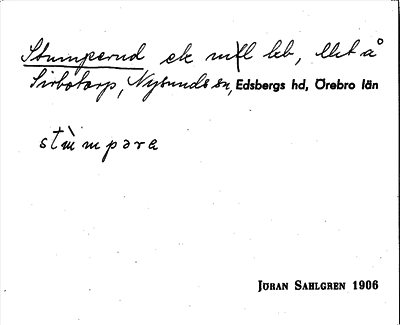 Stumperud ek mtl beb, lht å
Sirbotorp, Nysunds sn, Edsbergs hd, Örebro län
stùmpəra
JÖRAN SAHLGREN 1906